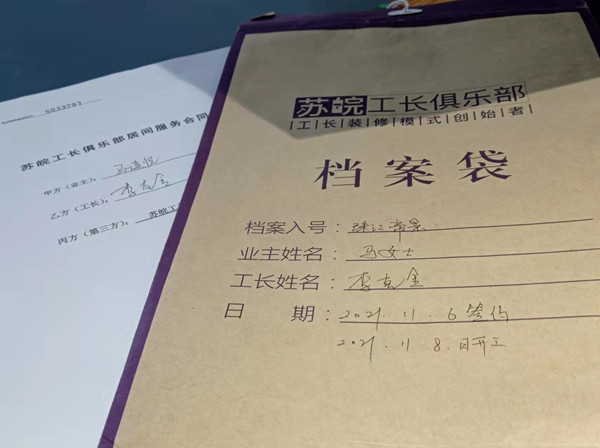 5033787
苏皖工长俱乐部居间服务合同
甲方（业主）：
乙方（工长）：李克金
丙方（第三方）：苏皖工
苏皖工长俱乐部
工长装修模式创始者
档案袋
档案入号：珠江帝景
业主姓名：马女士
工长姓名：李克金
日 期：2021.11.6签约
2021.11 8.日开工